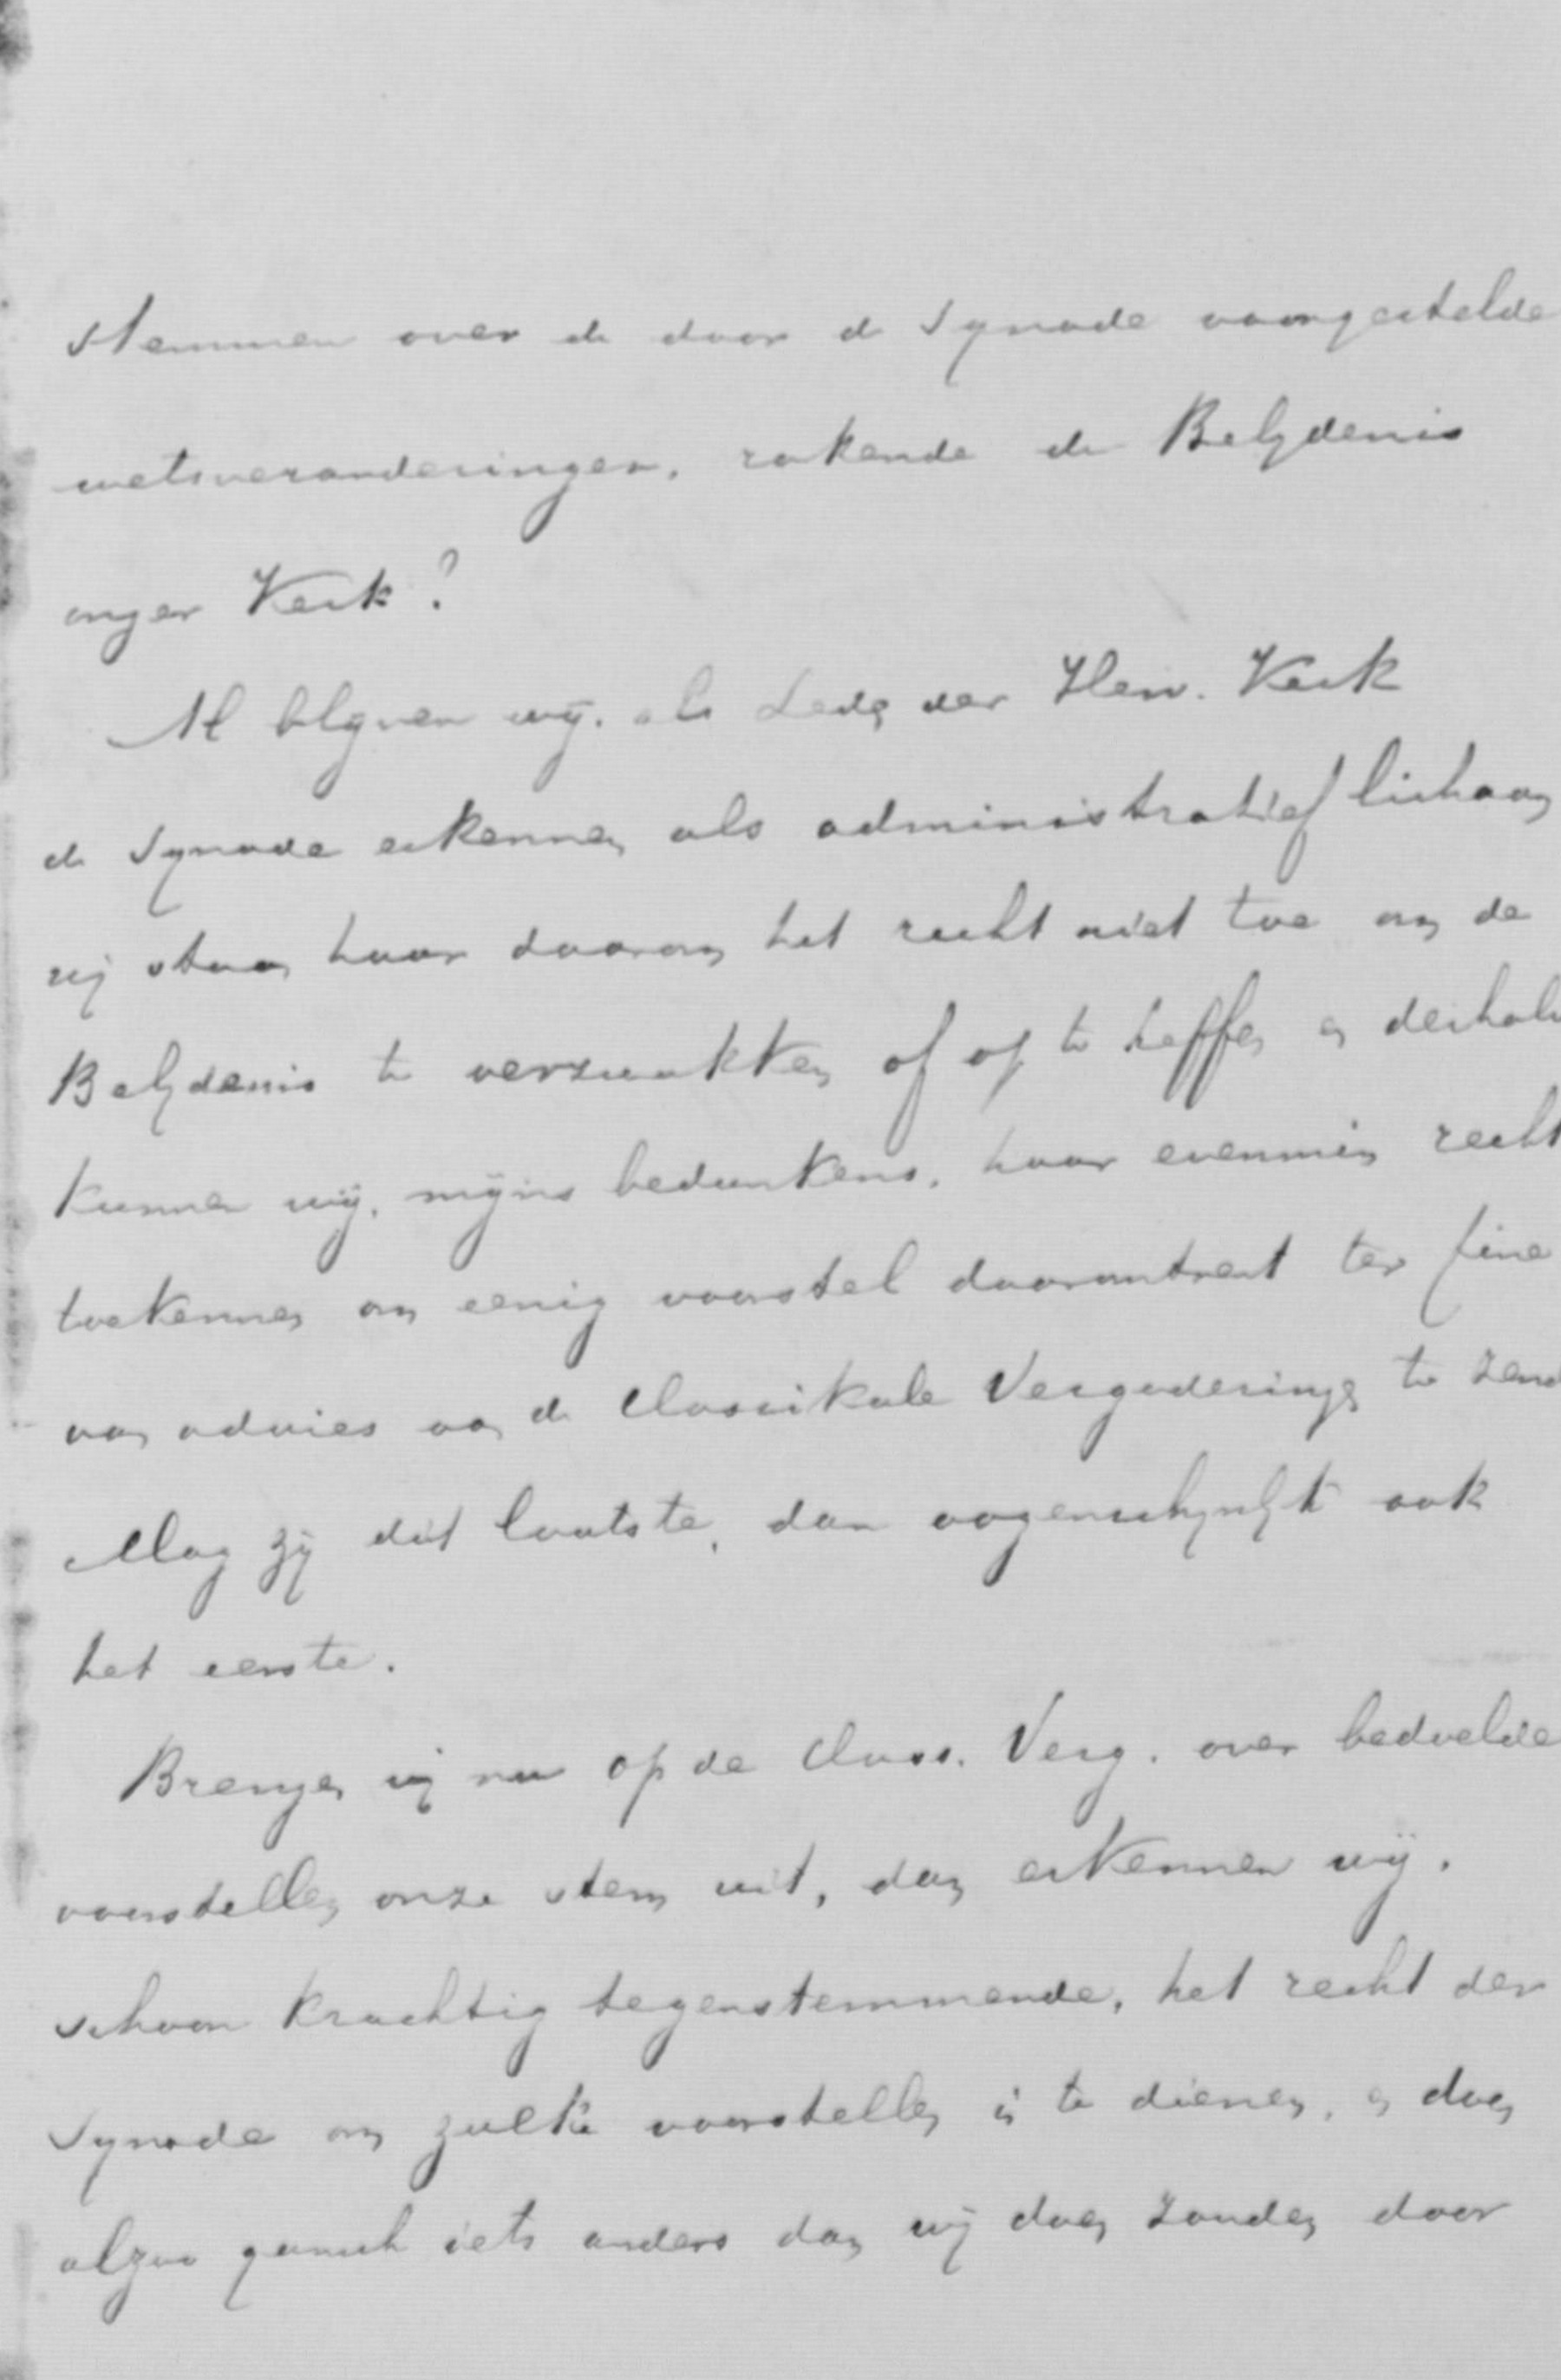 stemmen over de door de Synode voorgestelde
wetsveranderingen, rakende de Belydenis
onzer Kerk?
Al blyven wij, als Leden der Herv. Kerk
de Synode erkennen als administratief lichaam
wij staan haar daarom het recht niet toe om de
Belydenis te verzwakken of op te heffen en derhalve
kunnen wij, mijns bedunkens, haar evenmin recht
toekennen om eenig voorstel daaromtrent ter fine
van advies aan de Classikale Vergaderingen te zend
Mag zij dit laatste, dan oogenschynlyk ook
het eerste.
Brengen wij nu op de Class. Verg. over bedoelde
voorstellen onze stem uit, dan erkennen wij,
schoon krachtig tegenstemmende, het recht der
Synode om zulke voorstellen in te dienen, en doen
alzoo gansch iets anders dan wij doen zouden door